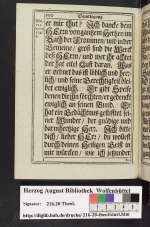 er mir thut? Ich dancke dem
HErrn von gantzem Hertzen im
Rath der Frommen und in der
Gemeine, groß sind die Werck
des HErrn, und wer ihr achtet
der hat eitel Lust daran. Was
er ordnet das ist löblich und herr-
lich, und seine Gerechtigkeit blei-
bet ewiglich. Er gibt Speise
denen die ihn fürchten er gedencket
ewiglich an seinen Bund. Er
hat ein Gedächtnis gestifftet sei-
ner Wunder, der gnädige und
barmhertzige Herr. Ich bitte
dich, lieber HErr, du wollest
durch deinen Heiligen Geist in
mir würcken, wie ich jetzunder
Herzog August Bibliothek Wolfenbüttel
Signatur: 216.20 Theol.
http://diglib.hab.de/drucke/216-20-theol/start.htm